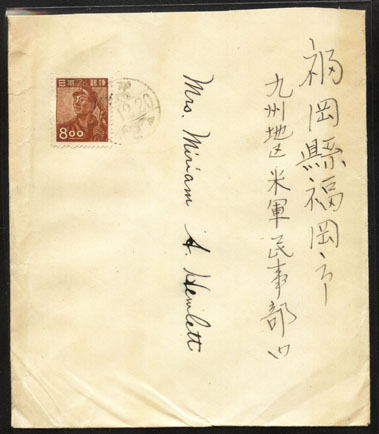 福岡縣福岡市
九州地区米軍民事部内
Mrs. Miriam A. Hewlett
日本郵便
8.00